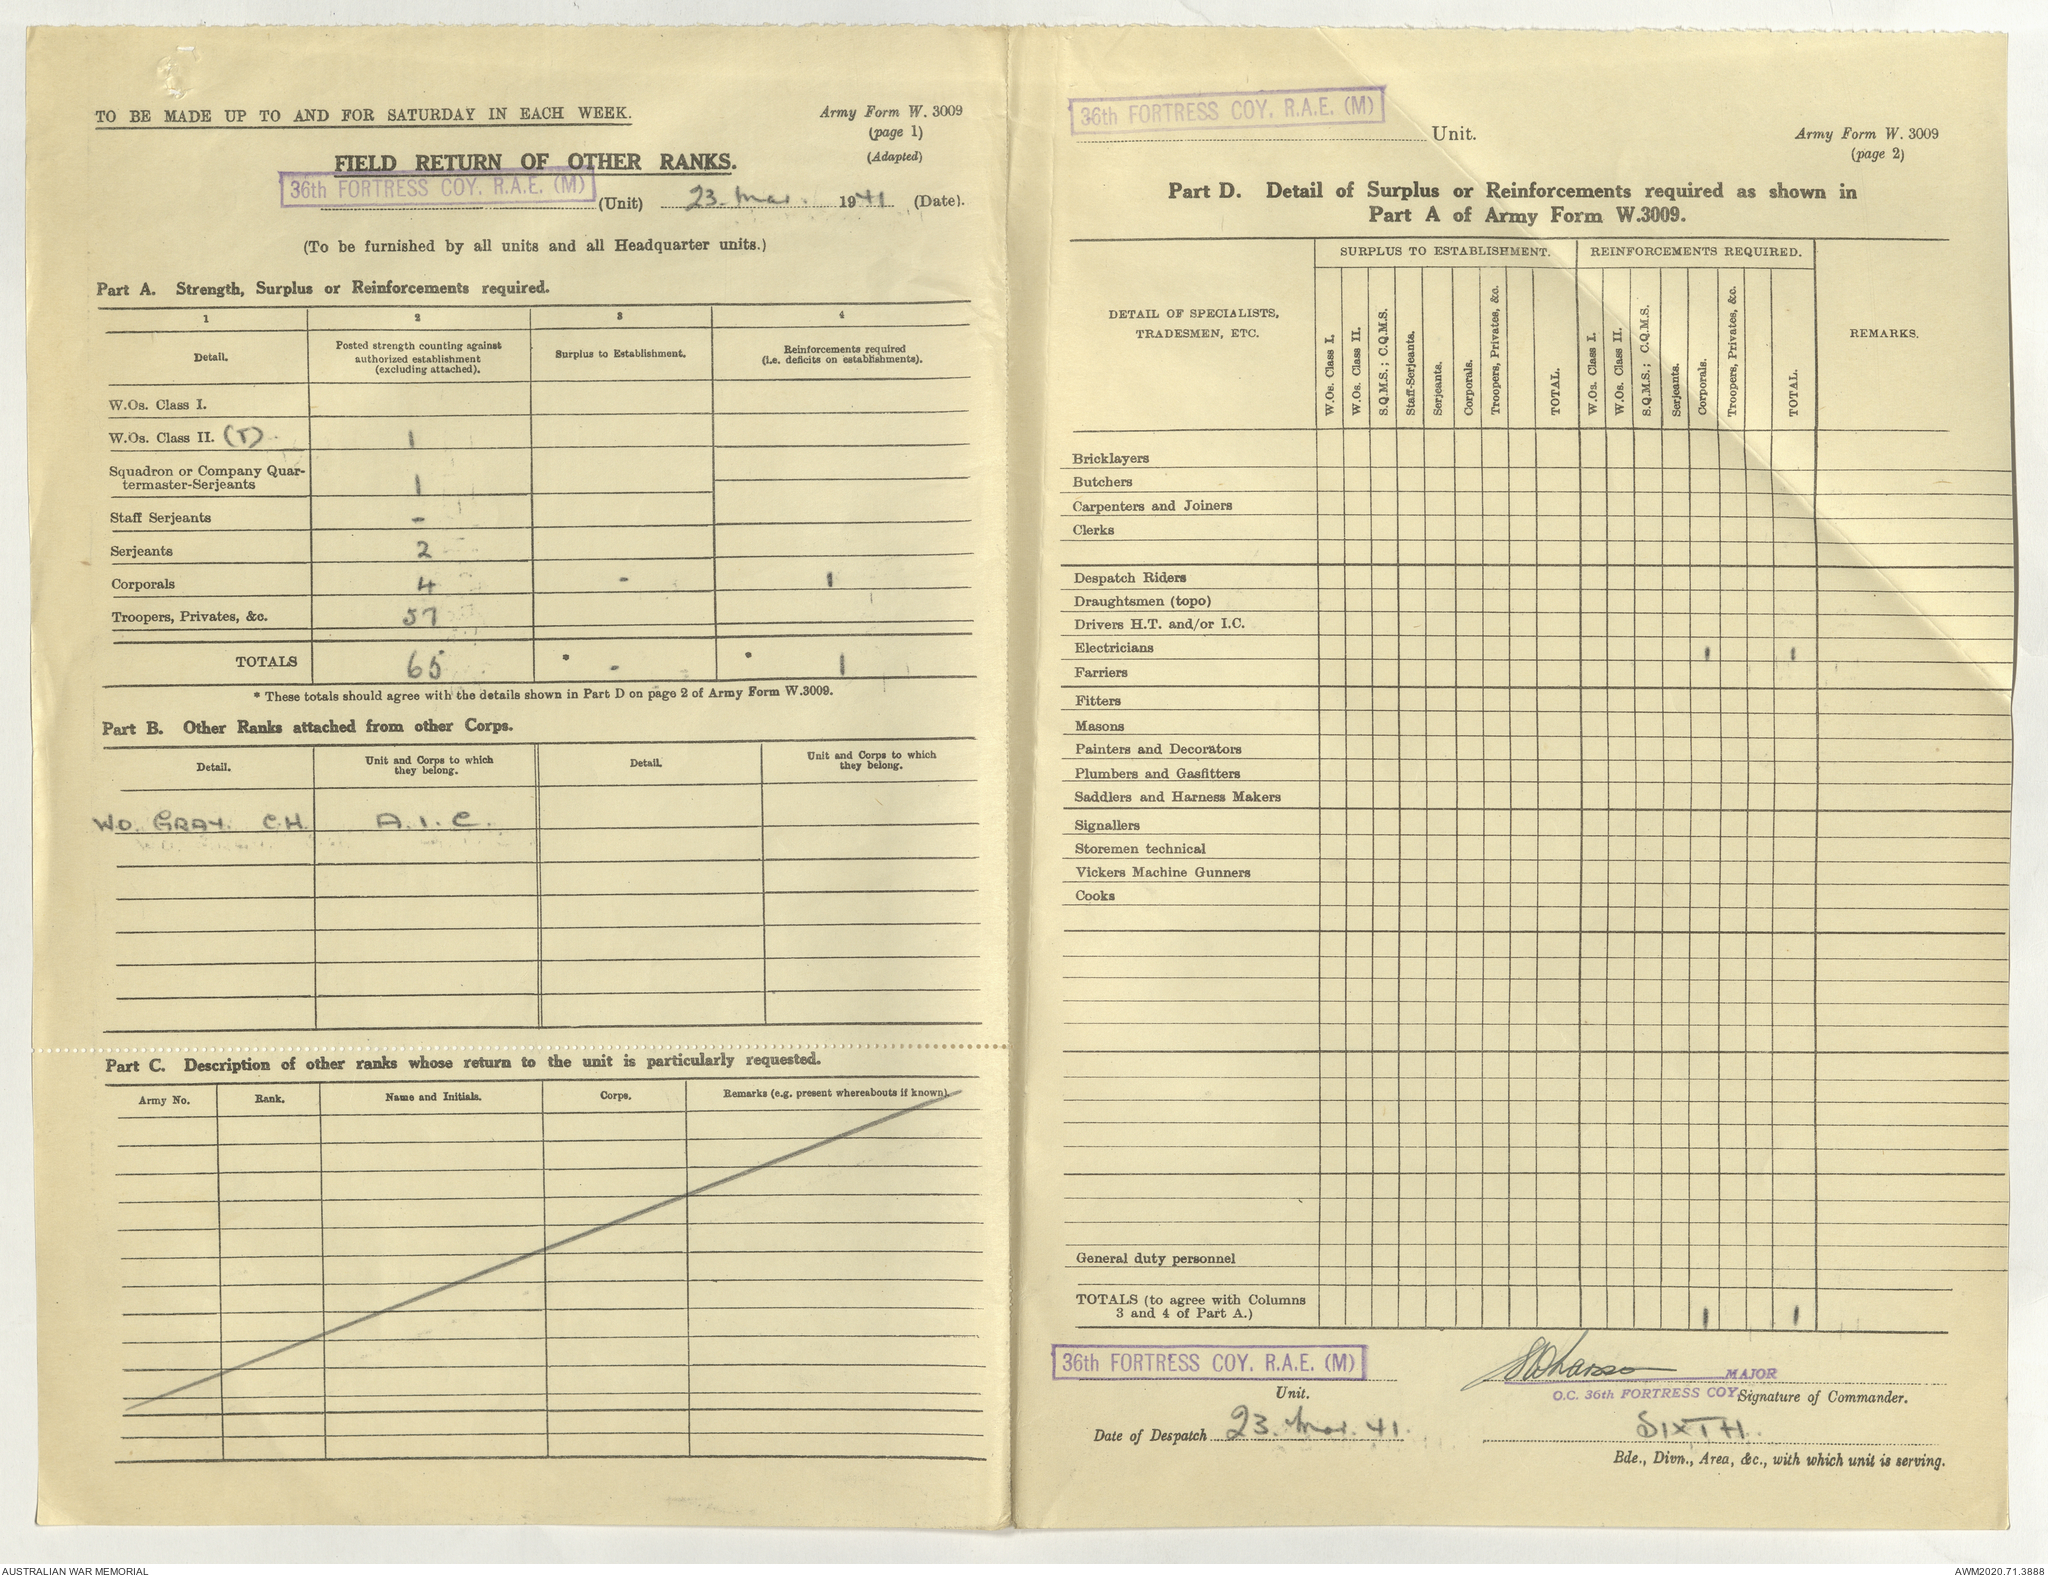 TO BE MADE UP TO AND FOR SATURDAY IN EACH WEEK.
Army Form W. 3009
(page 1)
(Adapted)
FIELD RETURN OF OTHER RANKS.
36th FORTRESS COY. R.A.E. (M) (Unit) 23. Mar. 1941 (Date).
(To be furnished by all units and all Headquarter units.)
Part A. Strength, Surplus or Reinforcements required.
1 2 3 4
Detail. Posted strength counting against authorized establishment (excluding attached). Surplus to Establishment. Reinforcements required (i.e. deficits on establishments).
W.Os. Class I.
W.Os. Class II. (T) 1
Squadron or Company Quar-
termaster-Serjeants 1
Staff Serjeants -
Serjeants 2
Corporals 4 - 1
Troopers, Privates, &c. 57
TOTALS 65 * - * 1
* These totals should agree with the details shown in Part D on page 2 of Army Form W.3009.
Part B. Other Ranks attached from other Corps.
Detail. Unit and Corps to which they belong. Detail. Unit and Corps to which they belong.
W.O. GRAY. C.H. A.I.C.
Part C. Description of other ranks whose return to the unit is particularly requested.
Army No. Rank. Name and Initials. Corps. Remarks (e.g. present whereabouts if known).
36th FORTRESS COY. R.A.E. (M) Unit.
Army Form W. 3009
(page 2)
Part D. Detail of Surplus or Reinforcements required as shown in
Part A of Army Form W.3009.
SURPLUS TO ESTABLISHMENT. REINFORCEMENTS REQUIRED.
DETAIL OF SPECIALISTS,
TRADESMEN, ETC.
W.Os. Class I.
W.Os. Class II.
S.Q.M.S. ; C.Q.M.S.
Staff-Serjeants.
Serjeants.
Corporals.
Troopers, Privates, &c.
TOTAL.
W.Os. Class I.
W.Os. Class II.
S.Q.M.S. ; C.Q.M.S.
Serjeants.
Corporals.
Troopers, Privates, &c.
TOTAL.
REMARKS.
Bricklayers
Butchers
Carpenters and Joiners
Clerks
Despatch Riders
Draughtsmen (topo)
Drivers H.T. and/or I.C.
Electricians 1 1
Farriers
Fitters
Masons
Painters and Decorators
Plumbers and Gasfitters
Saddlers and Harness Makers
Signallers
Storemen technical
Vickers Machine Gunners
Cooks
General duty personnel
TOTALS (to agree with Columns
3 and 4 of Part A.) 1 1
36th FORTRESS COY. R.A.E. (M)
Unit.
MAJOR
O.C. 36th FORTRESS COY. Signature of Commander.
Date of Despatch 23. Mar. 41.
SIXTH.
Bde., Divn., Area, &c., with which unit is serving.
AUSTRALIAN WAR MEMORIAL
AWM2020.71.3888